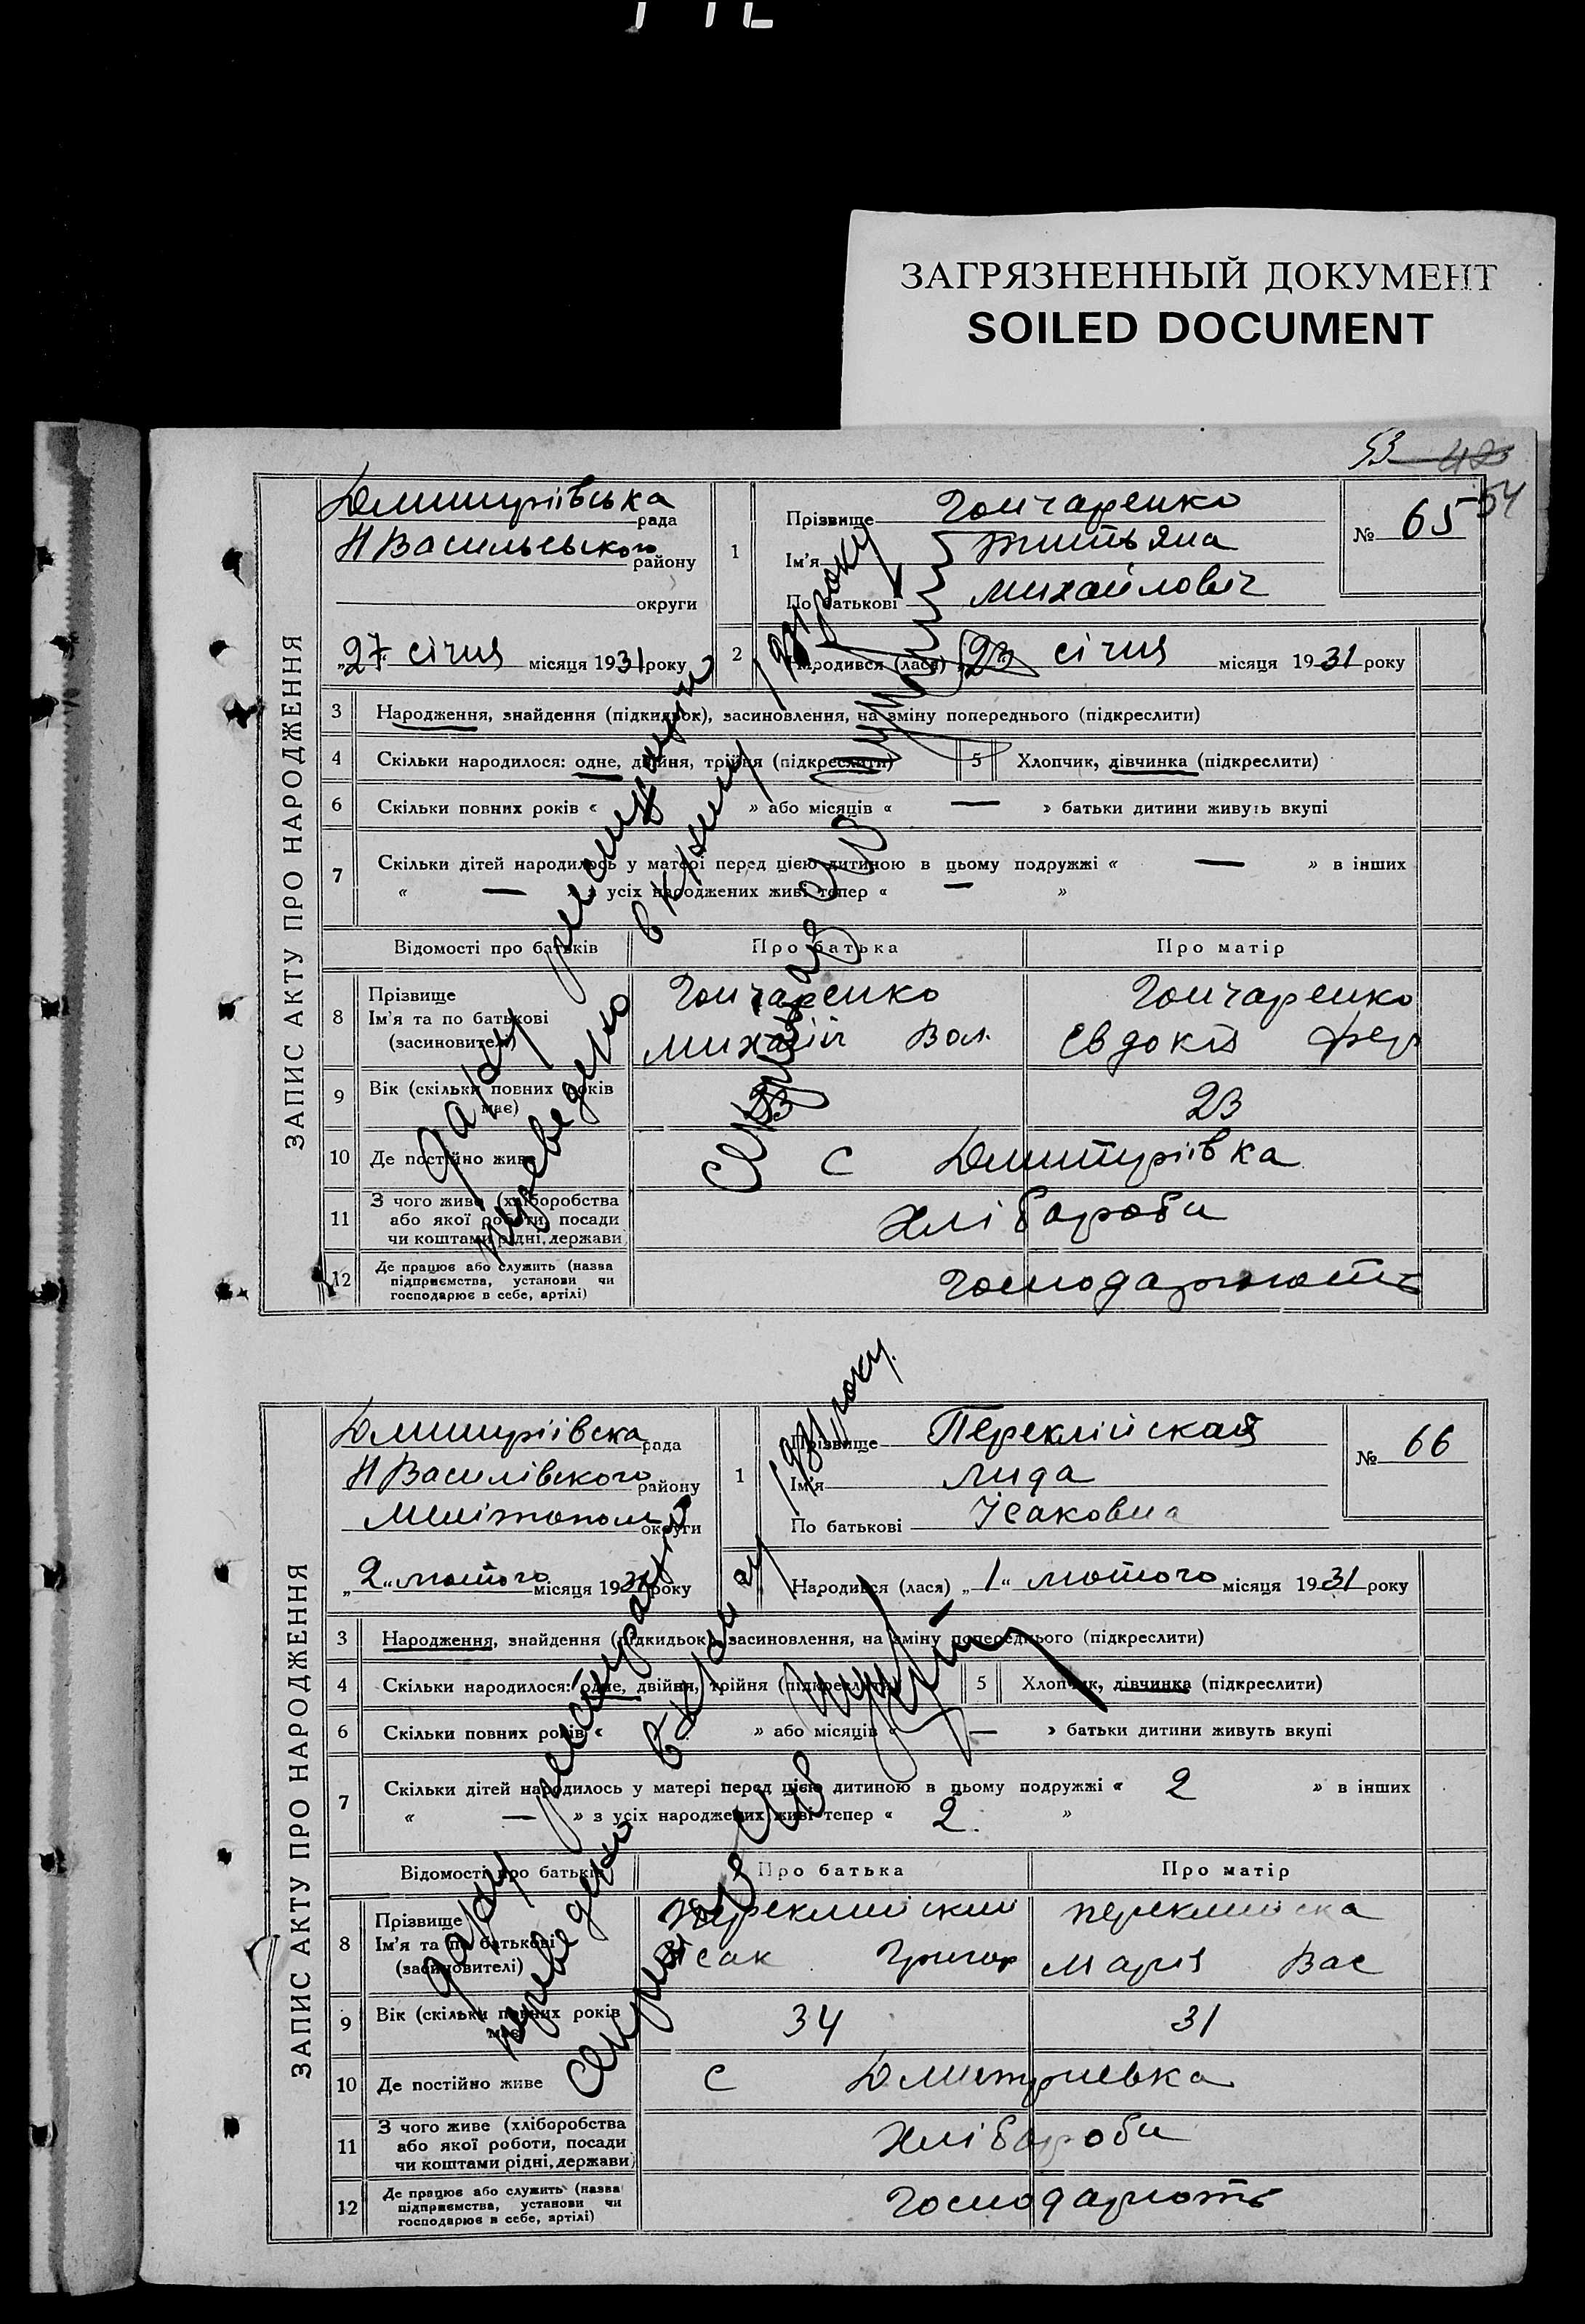 ЗАГРЯЗНЕННЫЙ ДОКУМЕНТ
SOILED DOCUMENT
53 42
54
ЗАПИС АКТУ ПРО НАРОДЖЕННЯ
Дмитріївська рада
Н Васильевского району
округи
„27" січня місяця 1931 року
1
Прізвище Гончаренко
Ім'я Титьяна
По батькові Михайлович
№ 65
2 Народився (лася) „23" січня місяця 1931 року
3 Народження, знайдення (підкидьок), засиновлення, на зміну попереднього (підкреслити)
4 Скільки народилося: одне, двійня, трійня (підкреслити) 5 Хлопчик, дівчинка (підкреслити)
6 Скільки повних років « » або місяців « — » батьки дитини живуть вкупі
7 Скільки дітей народилось у матері перед цією дитиною в цьому подружжі « — » в інших
« — » з усіх народжених живі тепер « — »
Відомості про батьків Про батька Про матір
8 Прізвище Гончаренко Гончаренко
Ім'я та по батькові Михайл Вас. Евдокія Фед
(засновителі)
9 Вік (скільки повних років має) 23 23
10 Де постійно живе с Дмитріівка
11 З чого живе (хліборобства або якої роботи, посади чи коштами рідні, держави) Хлібороби
12 Де працює або служить (назва підприємства, установи чи господарює в себе, артілі) Господарюють
Дату реєстрації
переведено в книгу 1931 року
Секретар с/в
ЗАПИС АКТУ ПРО НАРОДЖЕННЯ
Дмитріівска рада
Н Василівского району
Мелітополь округи
„2" лютого місяця 1931 року
1
Прізвище Переклійская
Ім'я Лида
По батькові Ісаковна
№ 66
Народився (лася) „1" лютого місяця 1931 року
3 Народження, знайдення (підкидьок), засиновлення, на зміну попереднього (підкреслити)
4 Скільки народилося: одне, двійня, трійня (підкреслити) 5 Хлопчик, дівчинка (підкреслити)
6 Скільки повних років « » або місяців « — » батьки дитини живуть вкупі
7 Скільки дітей народилось у матері перед цією дитиною в цьому подружжі « 2 » в інших
« — » з усіх народжених живі тепер « 2. »
Відомості про батьків Про батька Про матір
8 Прізвище Переклийский Переклийска
Ім'я та по батькові Ісак Григор Марія Вас
(засиновителі)
9 Вік (скільки повних років має) 34 31
10 Де постійно живе с Дмитриевка
11 З чого живе (хліборобства або якої роботи, посади чи коштами рідні, держави) Хлібороби
12 Де працює або служить (назва підприємства, установи чи господарює в себе, артілі) Господарють
Дату реєстрації
переведено в книгу 1931 року.
Секретар с/в